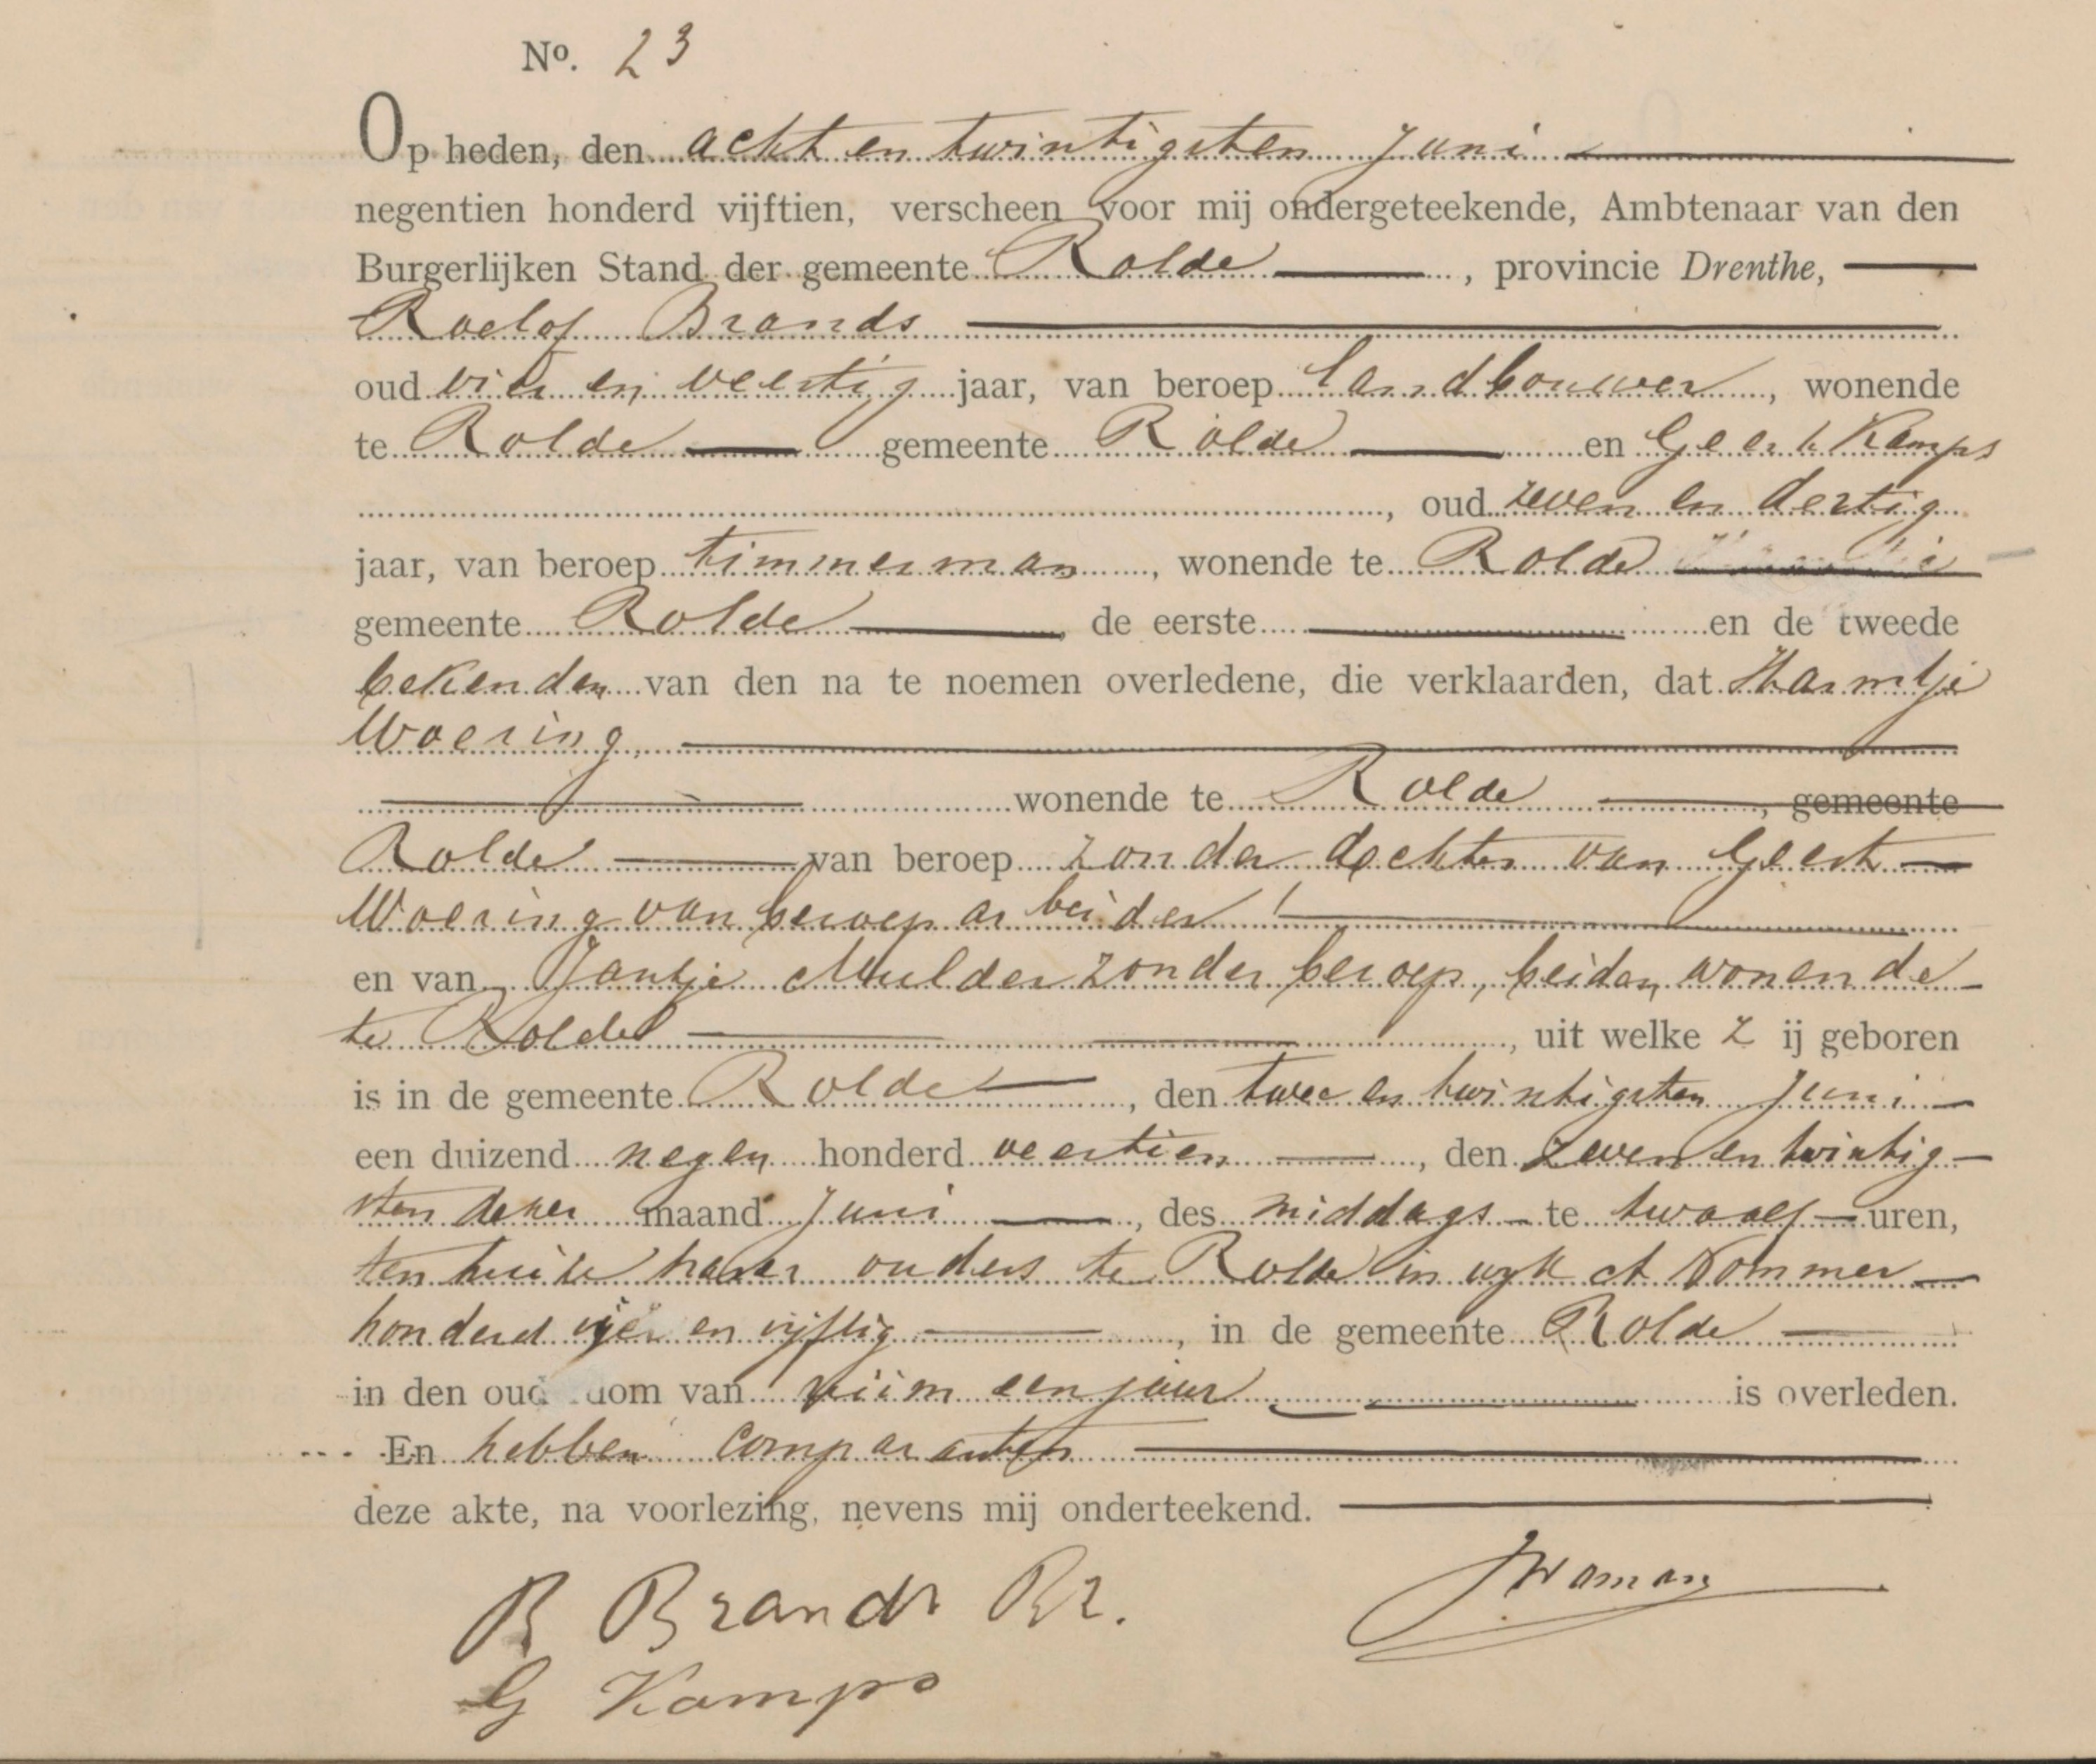 No. 23
Op heden, den acht en twintigsten Juni
negentien honderd vijftien, verscheen voor mij ondergeteekende, Ambtenaar van den
Burgerlijken Stand der gemeente Rolde, provincie Drenthe,
Roelof Brands
oud vier en veertig jaar, van beroep landbouwer, wonende
te Rolde gemeente Rolde en Geert Kamps
, oud zeven en dertig
jaar, van beroep timmerman, wonende te Rolde
gemeente Rolde de eerste en de tweede
bekenden van den na te noemen overledene, die verklaarden, dat Harmtje
Woering,
wonende te Rolde, gemeente
Rolde van beroep zonder dochter van Geert
Woering van beroep arbeider
en van Jantje Mulder zonder beroep, beiden wonende
te Rolde, uit welke Z ij geboren
is in de gemeente Rolde, den twee en twintigsten Juni
een duizend negen honderd veertien, den zeven en twintig-
sten dezer maand Juni, des middags te twaalf uren,
ten huize harer ouders te Rolde in wijk A nommer
honderd vier en vijftig, in de gemeente Rolde
in den oud dom van ruim een jaar is overleden.
En hebben comparanten
deze akte, na voorlezing, nevens mij onderteekend.
R Brands Rz.
G Kamps